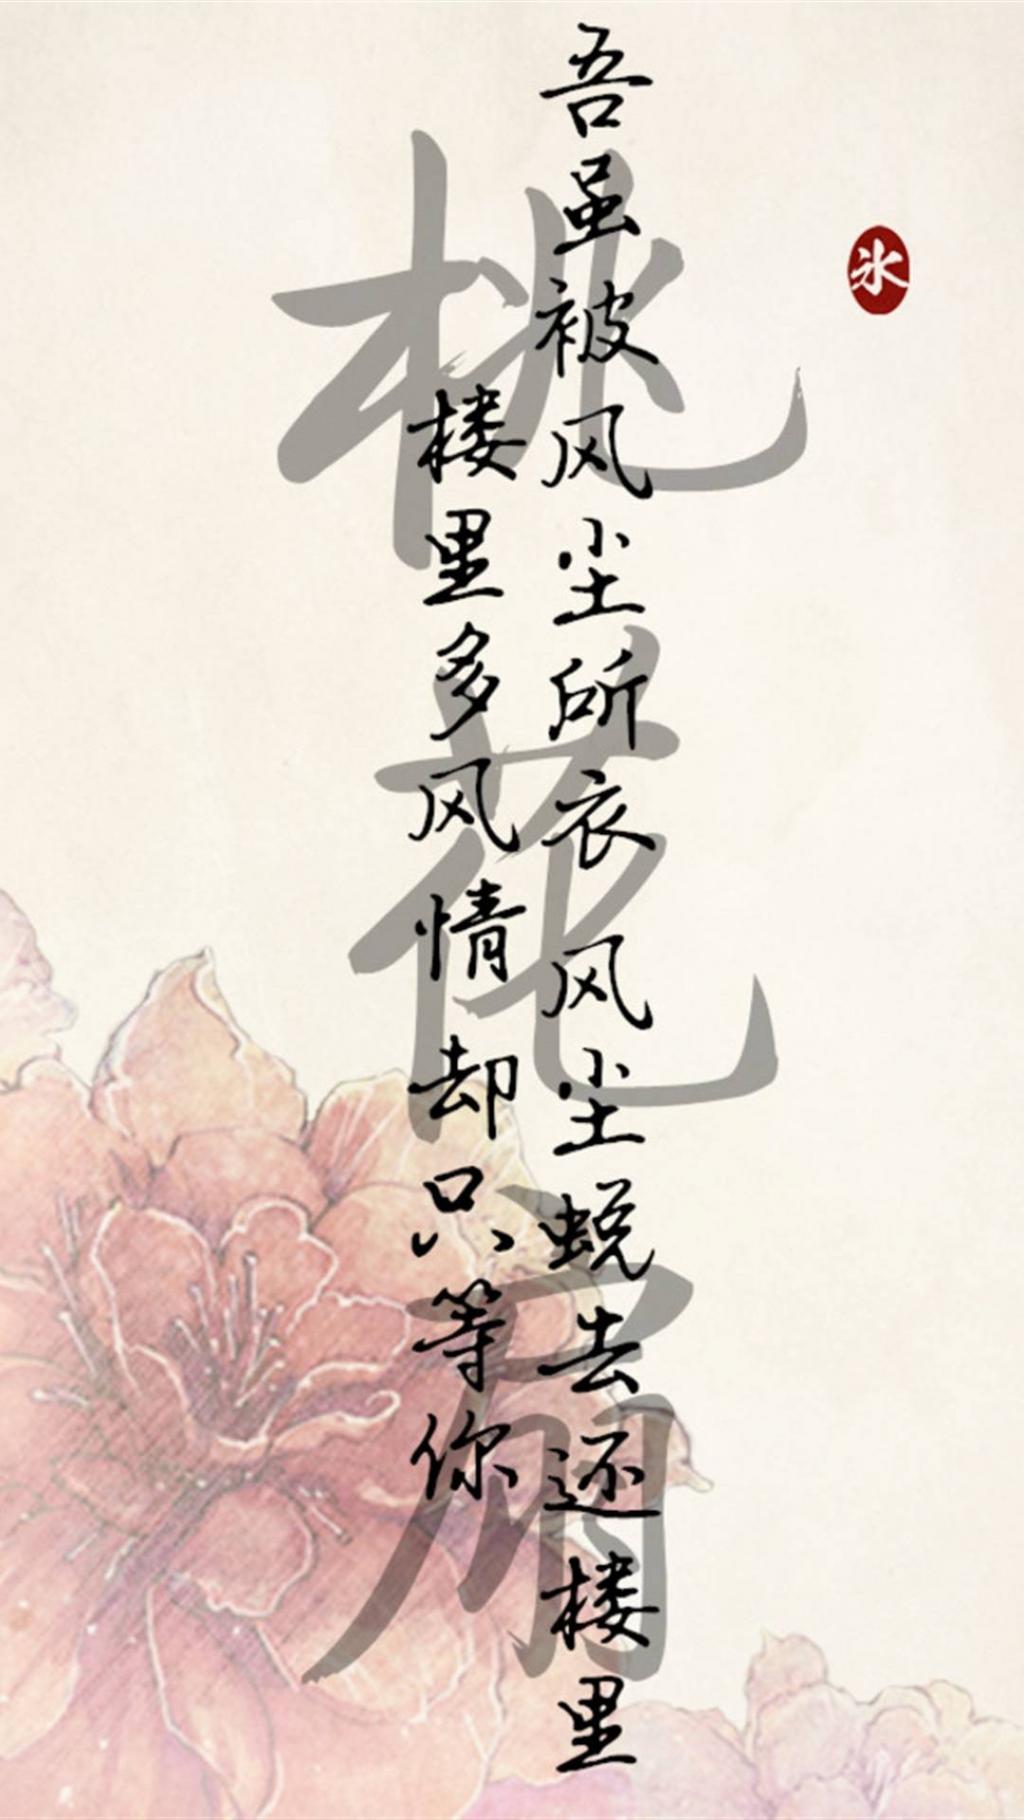 吾虽被风尘所衣 风尘蜕去还楼里
楼里多风情 却只等你
桃花扇
氷